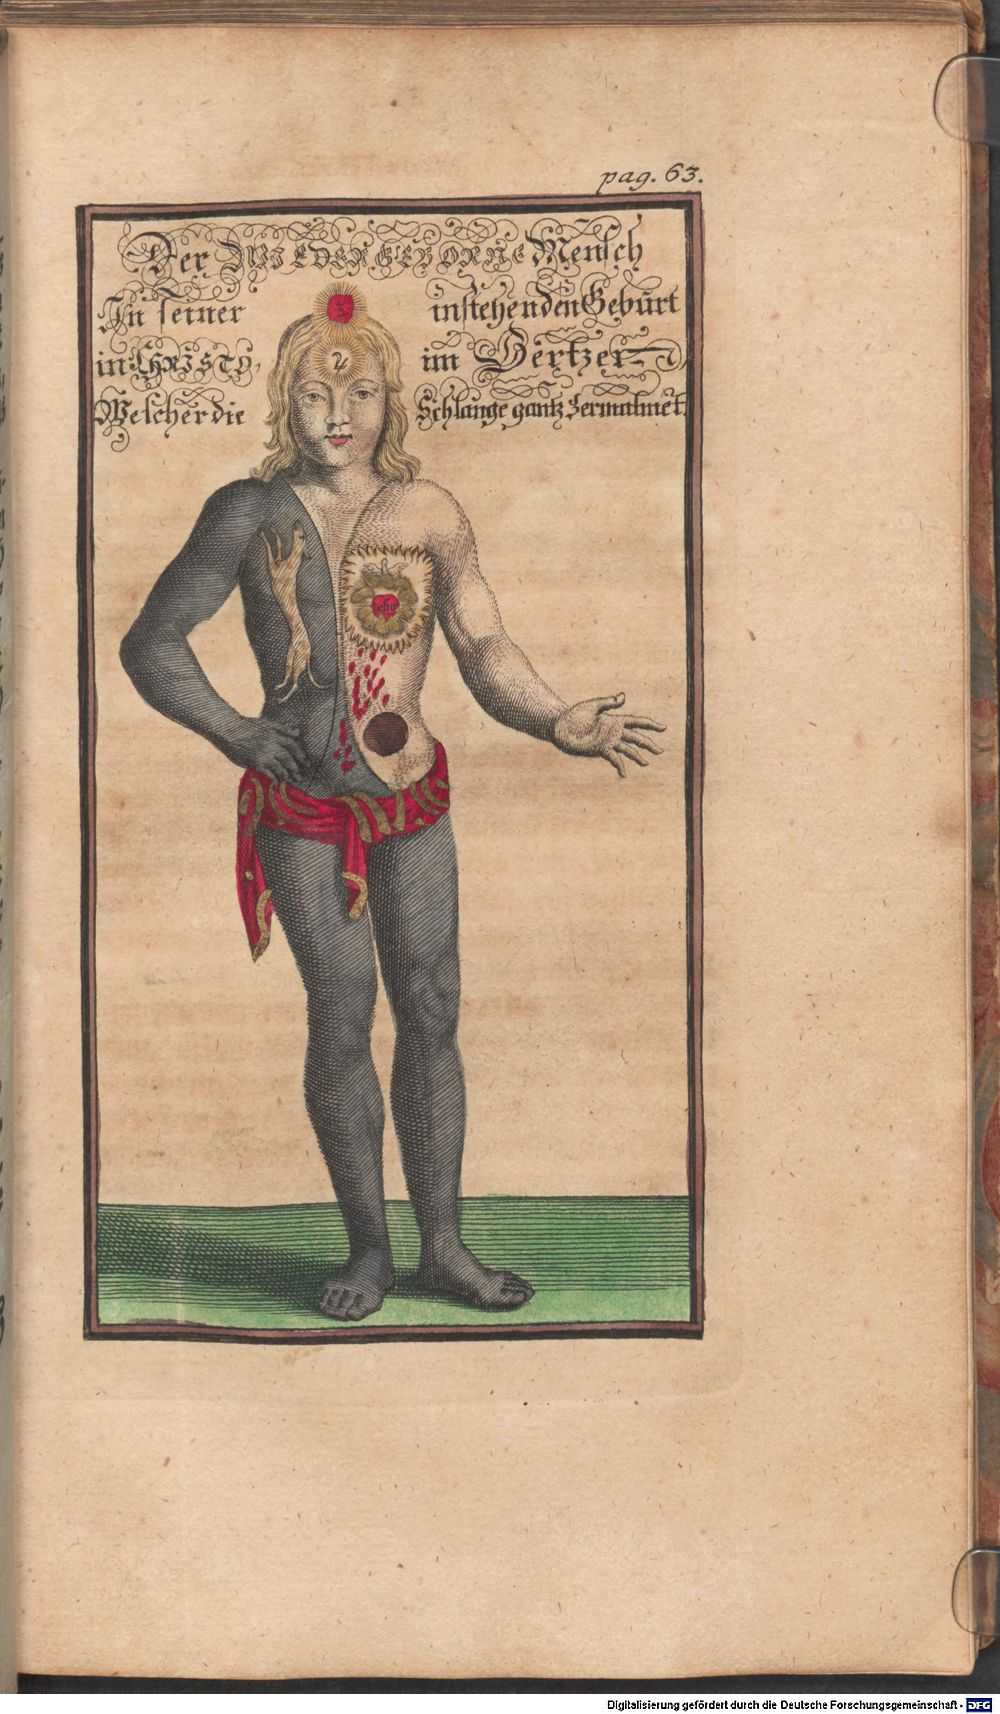 pag. 63.
Der WIEDERGEBORNE Mensch
In seiner instehenden Gebürt
in CHRISTO, im Hertzen
Welcher die Schlange gantz Zermalmet.
♄
♃
Jesus
Digitalisierung gefördert durch die Deutsche Forschungsgemeinschaft - DFG